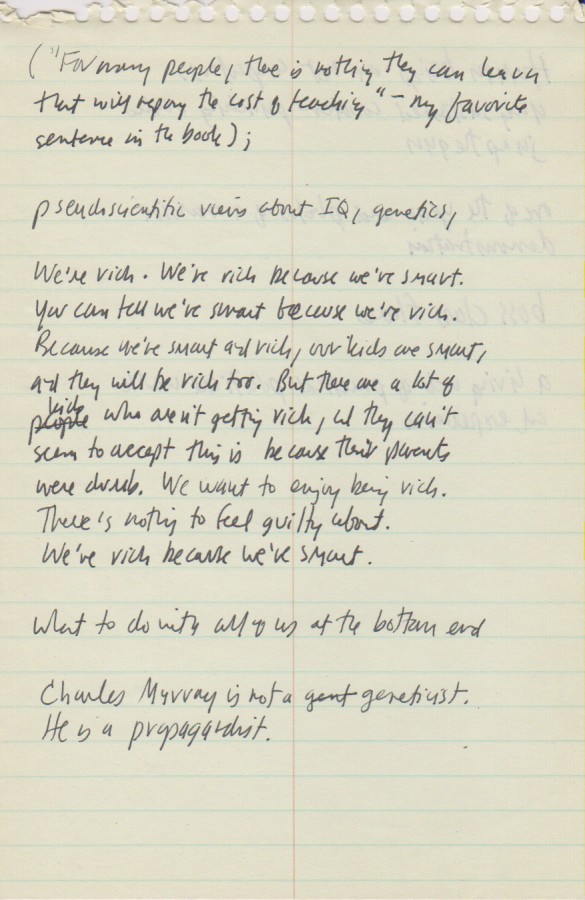 ("For many people, there is nothing they can learn
that will repay the cost of teaching" – my favorite
sentence in the book);
pseudoscientific views about IQ, genetics,
We're rich. We're rich because we're smart.
You can tell we're smart because we're rich.
Because we're smart and rich, our kids are smart,
and they will be rich too. But there are a lot of
people kids who aren't getting rich, and they can't
seem to accept this is because their parents
were dumb. We want to enjoy being rich.
There's nothing to feel guilty about.
We're rich because we're smart.
What to do with all of us at the bottom end
Charles Murray is not a gent geneticist.
He is a propagandist.